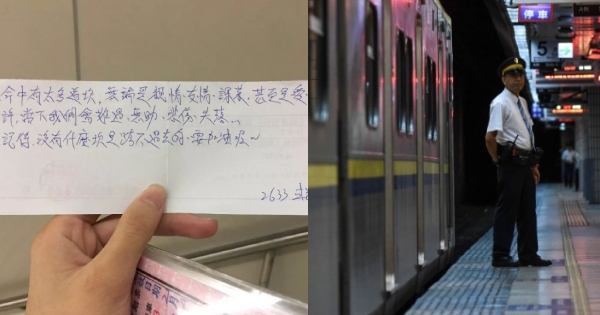 命中有太多道坎，無論是親情、友情、課業、甚至是愛
許，當下我們會難過、無助、悲傷、失落...
記得，沒有什麼坎是跨不過去的，要加油喔~
2633
停車
5